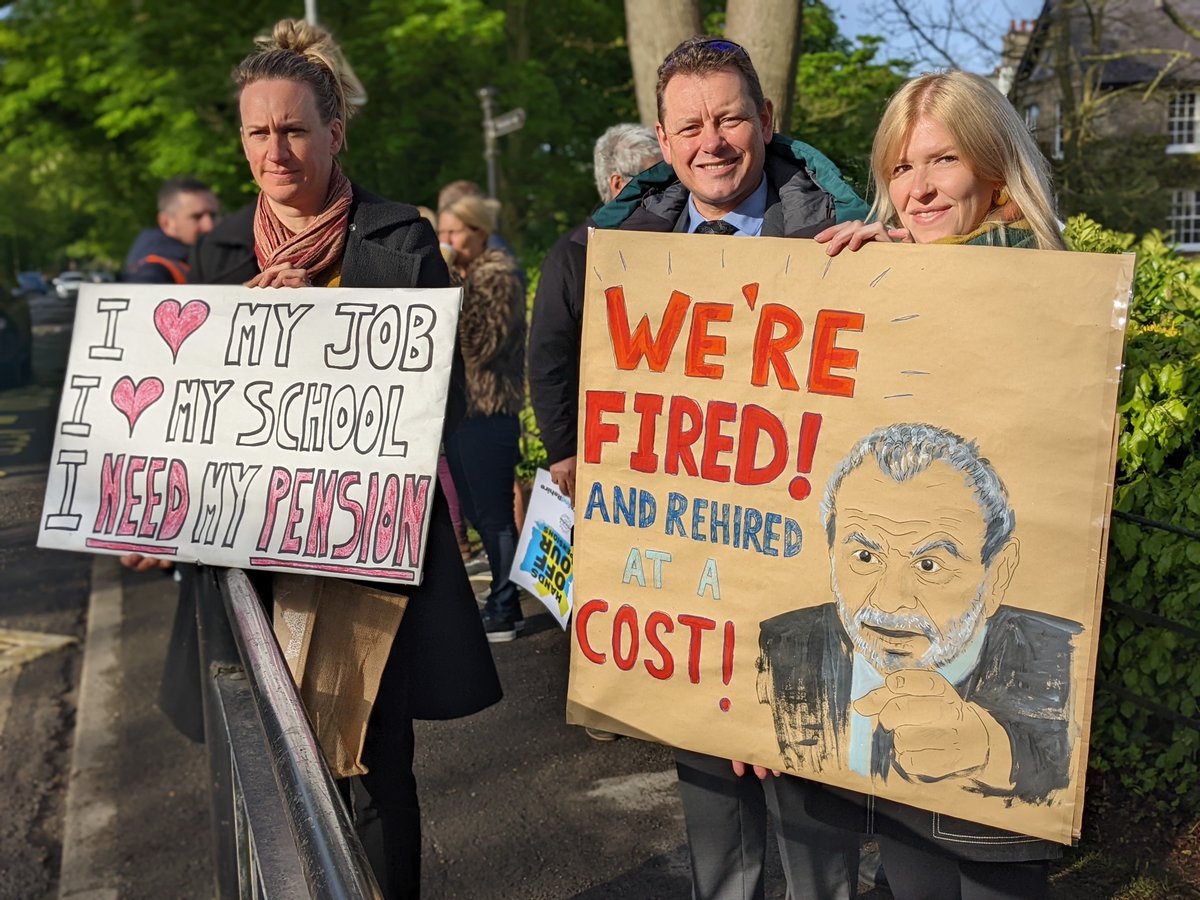 I ♥ MY JOB
I ♥ MY SCHOOL
I NEED MY PENSION
WE'RE
FIRED!
AND REHIRED
AT A
COST!
HANDS
OFF
OUR